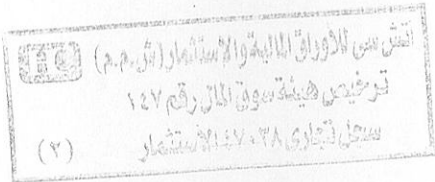 اتش سى للأوراق المالية والاستثمار (ش.م.م) HC
ترخيص هيئة سوق المال رقم ١٤٧
سجل تجارى ٤٧٠٣٨ الاستثمار (٣)